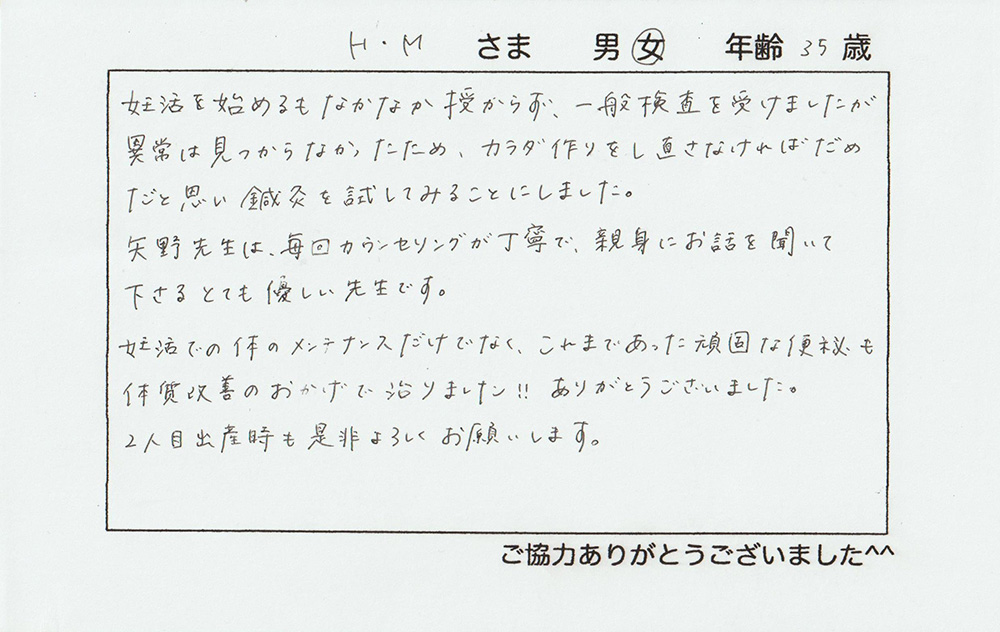 H・M さま 男 女 年齢 35 歳
妊活を始めるもなかなか授からず、一般検査を受けましたが
異常は見つからなかったため、カラダ作りをし直さなければだめ
だと思い鍼灸を試してみることにしました。
矢野先生は、毎回カウンセリングが丁寧で、親身にお話を聞いて
下さるとても優しい先生です。
妊活での体のメンテナンスだけでなく、これまであった頑固な便秘も
体質改善のおかげで治りました!! ありがとうございました。
2人目出産時も是非よろしくお願いします。
ご協力ありがとうございました^^